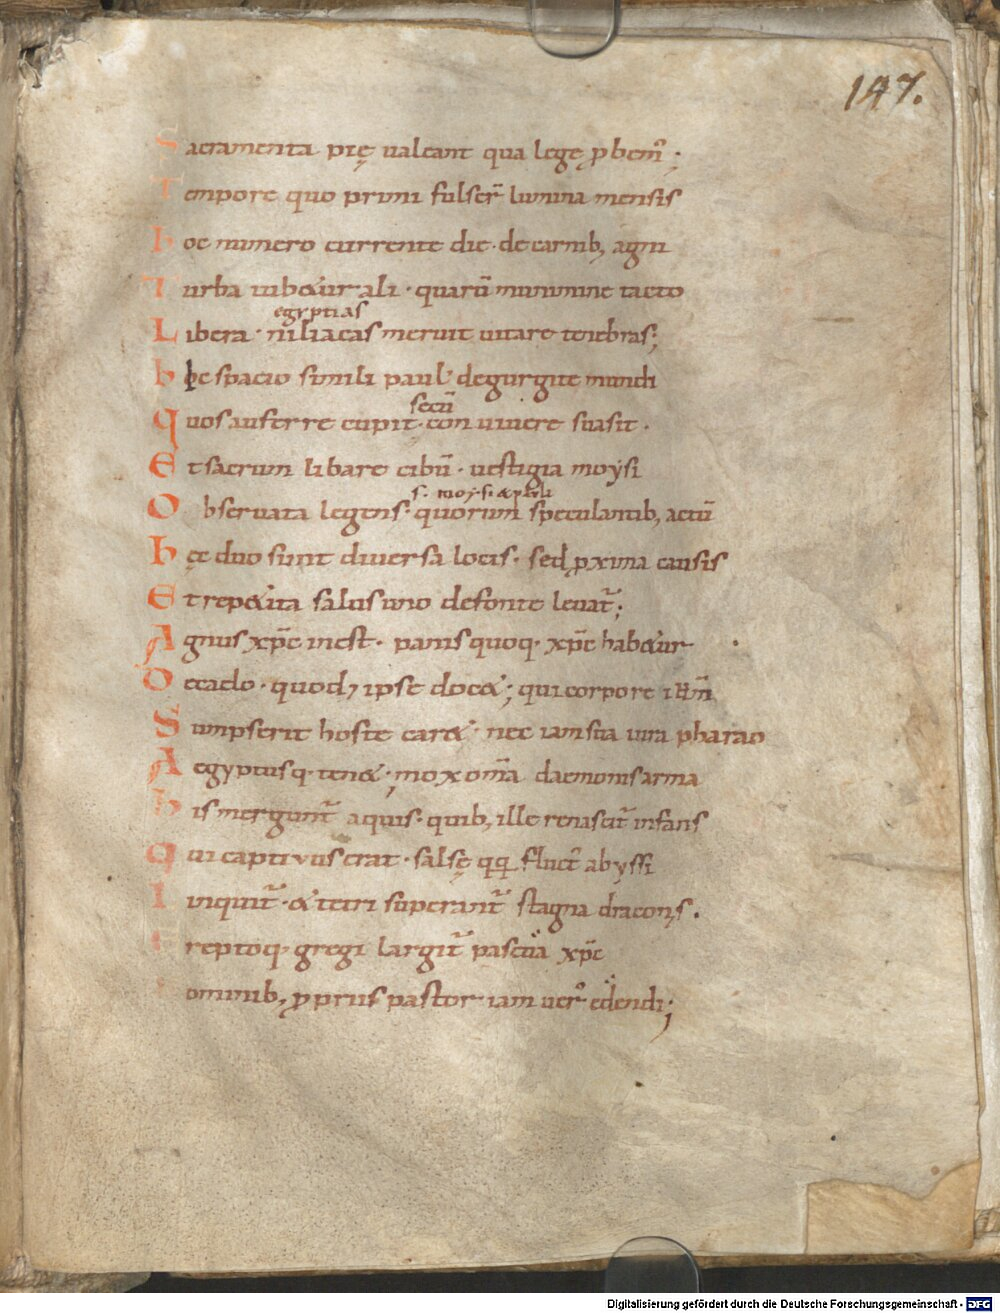 147.
Sacramenta pię ualeant qua lege ꝓbem᷒ ;
Tempore quo primi fulser̄ lumina mensis
hoc numero currente die · de carnib; agni
Turba iub&ur ali · quarū munimine tacto
egyptias
Libera · niliacas meruit uitare tenebras;
hoc spacio simili paul᷒ de gurgite mundi
secū
quos auferre cupit · con uiuere suasit ·
Et sacrum libare cibū · uestigia moẏsi
s· moẏsi & pauli
Obseruata legens · quorum speculantib; actū
hęc duo sunt diuersa locis · sed ꝓxima causis
Et rep&ita salus uno de fonte leuat̄ ;
Agnus xp̄c inest · panis quoq· xp̄c hab&ur
De caelo · quod; ipse doc& ; qui corpore
Sumpserit hoste car& · nec iam sua iura pharao
Aegyptusq· ten& ; mox om̄a daemonis arma
his mergunt̄ aquis · quib; ille renascit̄ infans
Qui captiuus erat · salsę qq fluct᷒ abyssi
Linquit̄ · & tetri superant̄ stagna draconis .
Ereptoq· gregi largit̄ pascua xp̄c
omnib; ꝓprius pastor iam uer᷒ edendi ;
Digitalisierung gefördert durch die Deutsche Forschungsgemeinschaft - DFG